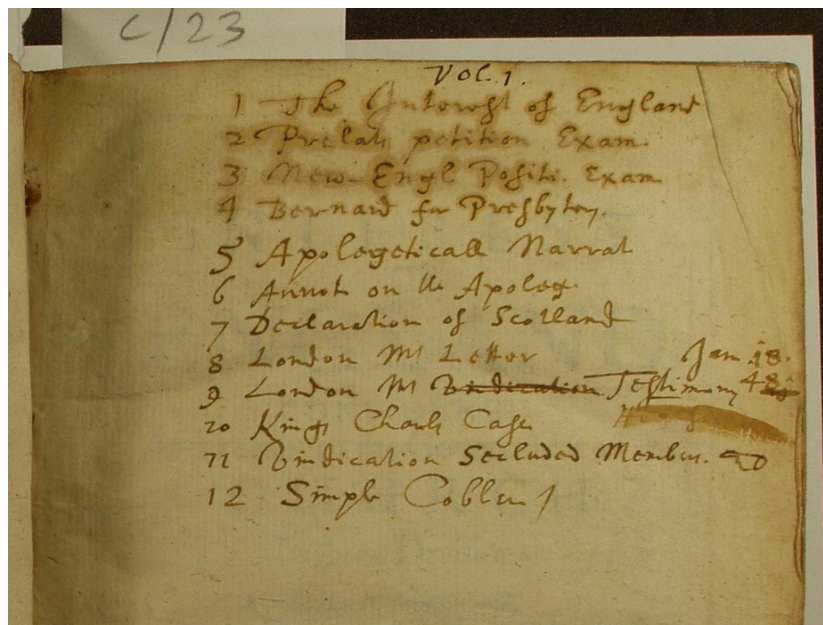 C/23
Vol. 1.
1 The Interest of England
2 Prelats petition Exam.
3 New-Engl Positi. Exam
4 Bernard for Presbytery.
5 Apologeticall Narrat
6 Annot on the Apolog.
7 Declaration of Scotland
8 London Mrs Letter Jan. 18.
9 London M Vindication Testimony 48
10 Kings Charls Case
11 Vindication Secluded Members.
12 Simple Cobler